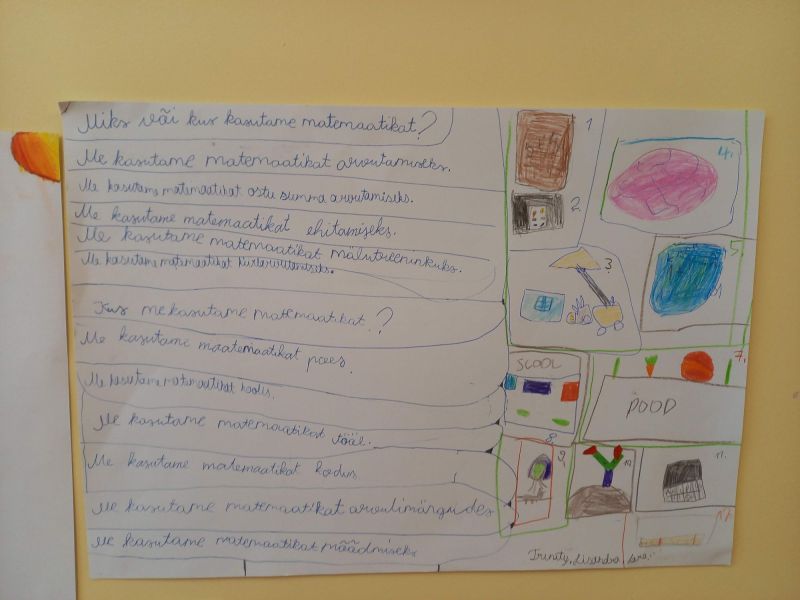 Miks või kus kasutame matemaatikat?
Me kasutame matemaatikat arvutamiseks.
Me kasutame matemaatikat ostu summa arvutamiseks.
Me kasutame matemaatikat ehitamiseks.
Me kasutame matemaatikat mälutreeninkuks.
Me kasutame matemaatikat
Kus me kasutame matemaatikat?
Me kasutame maatemaatikat poes.
Me kasutame matemaatikat koolis.
Me kasutame matemaatikat tööl.
Me kasutame matemaatikat kodus
Me kasutame matemaatikat
Me kasutame matemaatikat müüdmiseks
1
2
3.
4.
5.
SCOOL
7.
POOD
8.
9.
10.
11.
Trinity,